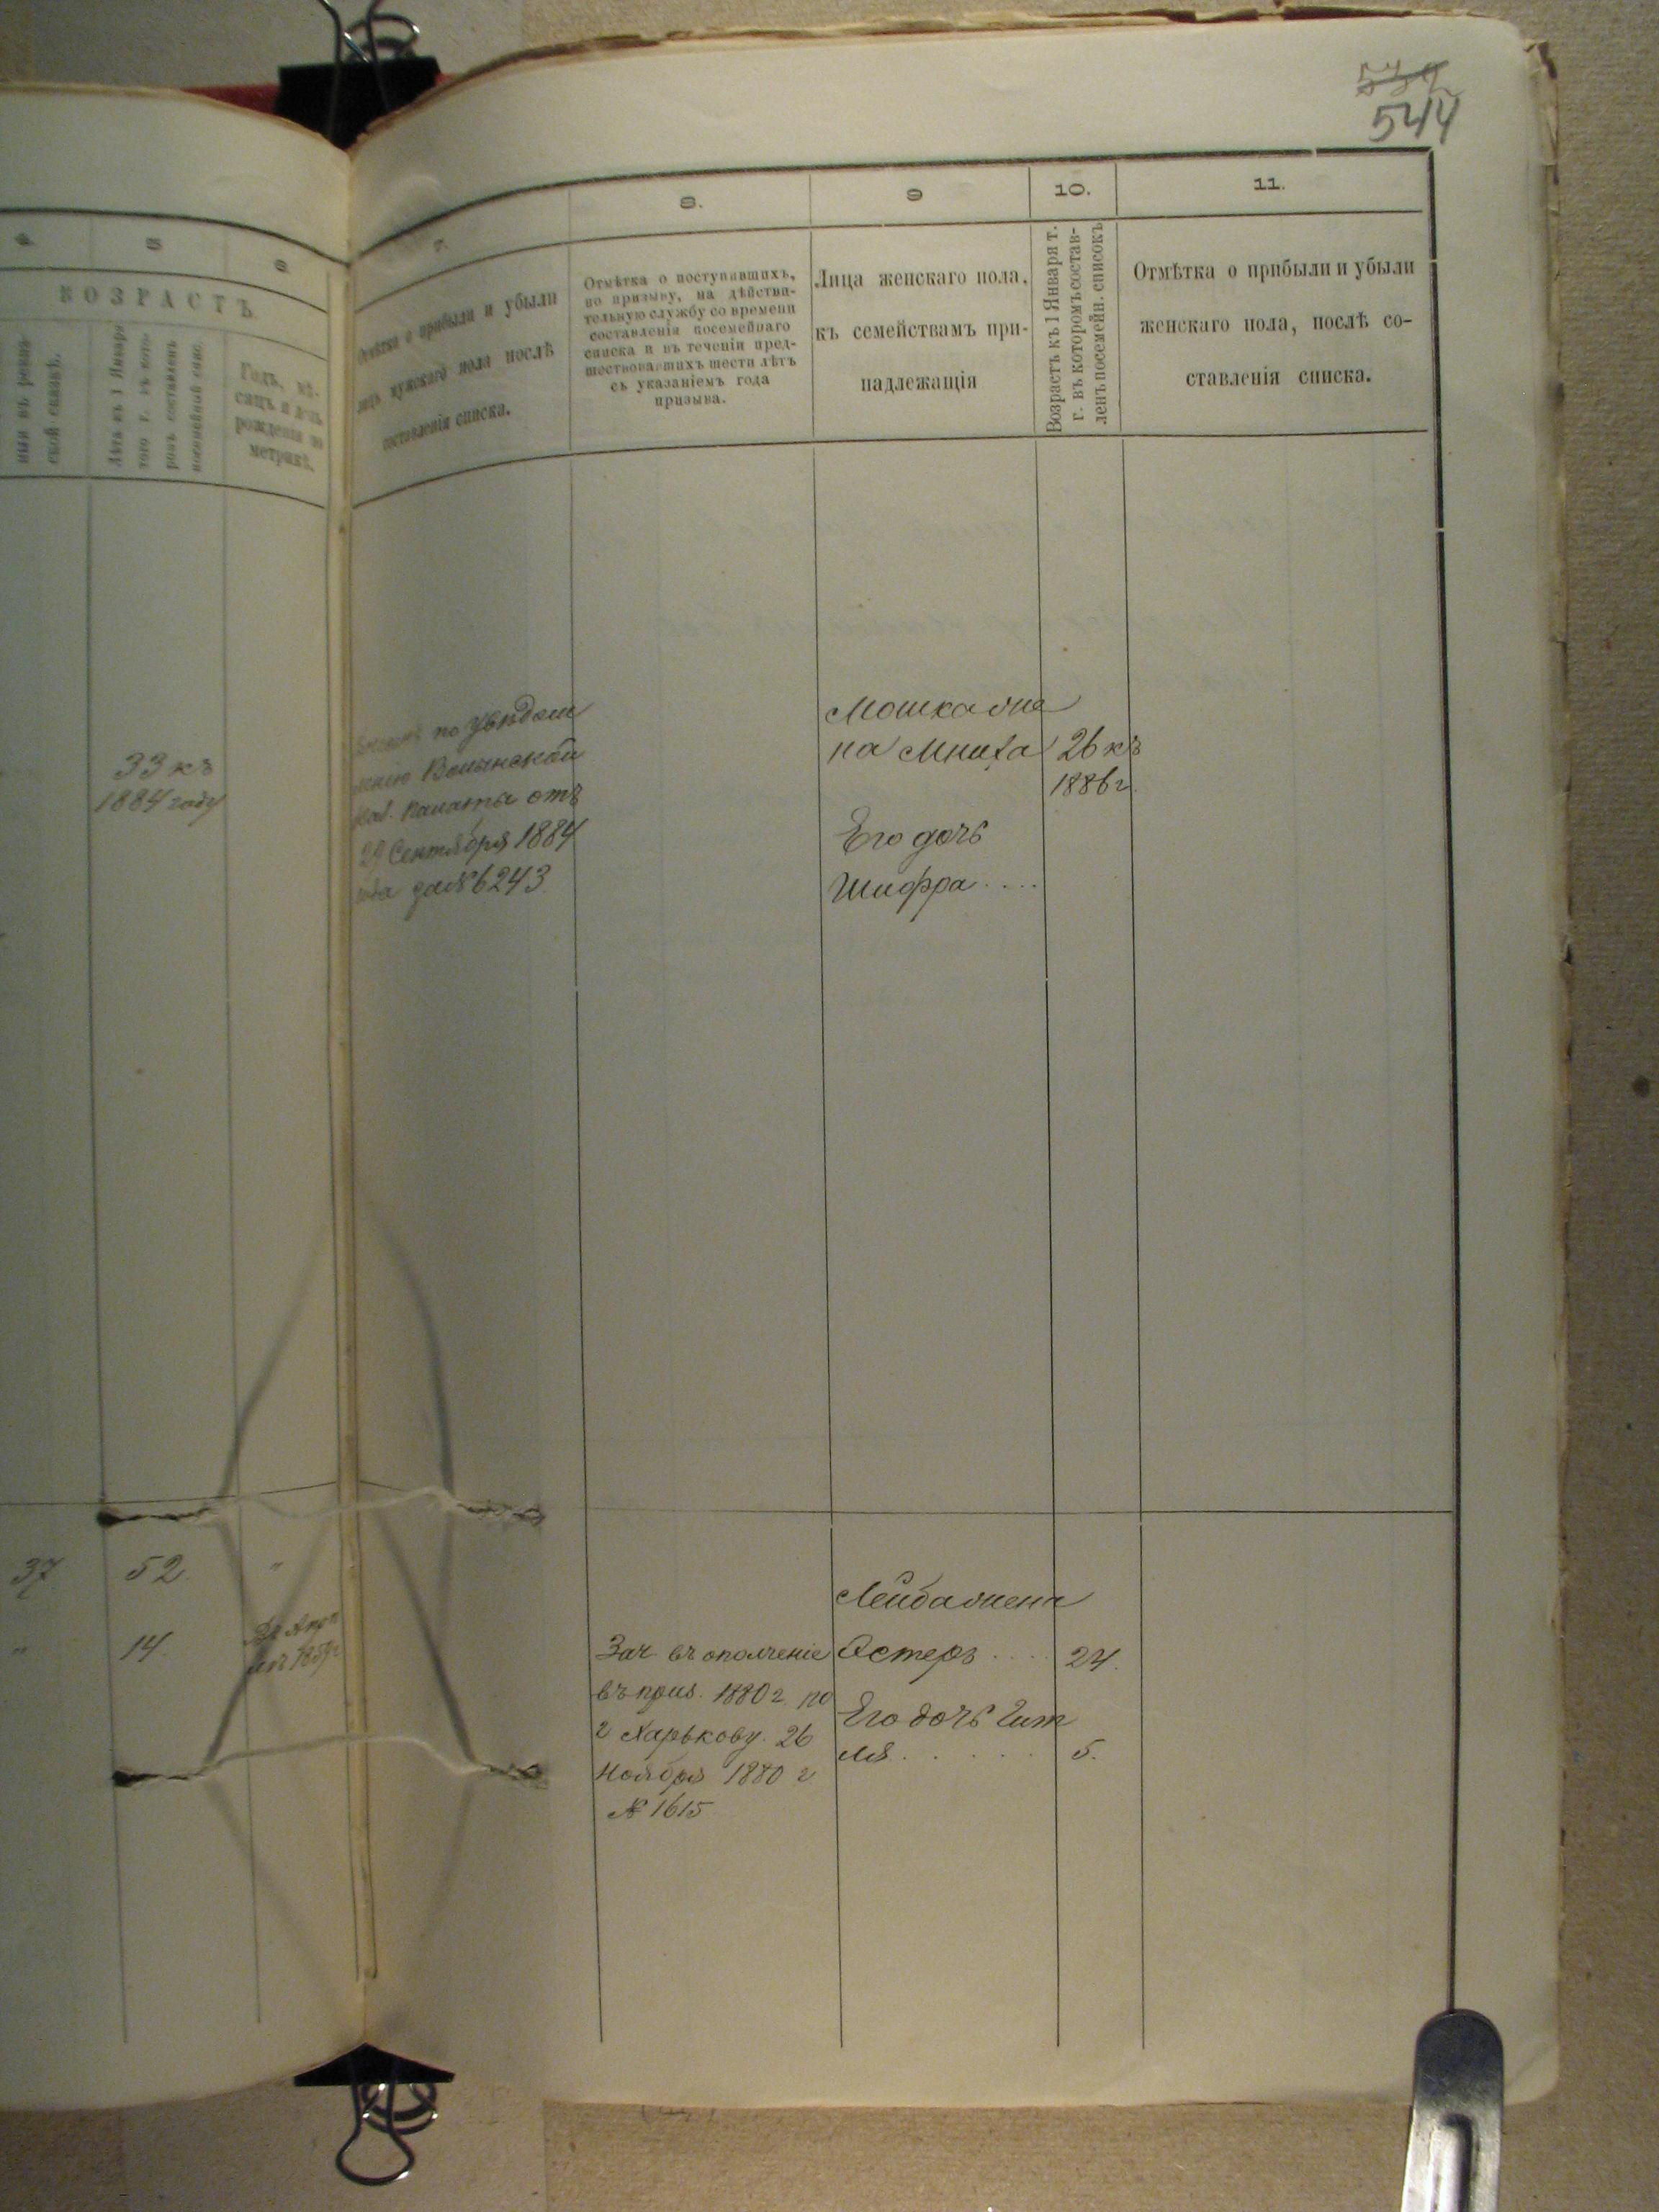 539
544
4.
5
6
ВОЗРАСТЪ
Лѣта къ 1 Января
Годъ, мѣ-
сяцъ и день
рожденія по
метрикѣ.
33 къ
1884 году
37
52
"
"
14
7.
8.
9
10.
11.
Отмѣтка о прибыли и убыли
лицъ мужскаго пола послѣ
составленія списка.
Отмѣтка о поступившихъ,
по призыву, на дѣйстви-
тельную службу со времени
составленія посемейнаго
списка и въ теченіи пред-
шествовавшихъ шести лѣтъ
съ указаніемъ года
призыва.
Лица женскаго пола,
къ семействамъ при-
надлежащія
Возрастъ къ 1 Января т.
г. въ которомъ состав-
ленъ посемейн. списокъ
Отмѣтка о прибыли и убыли
женскаго пола, послѣ со-
ставленія списка.
по увѣдом
мнію Волынской
Каз. Палаты отъ
29 Сентября 1884
года за № 6243
Мошка же
на Мниха 26 къ
1886 г.
Его дочь
Шифра ....
Лейба жена
Зач. въ ополченіе
въ приз. 1880 г. по
г Харькову. 26
Ноября 1880 г
№ 1615
Эстеръ .... 24.
Его дочь Гит
ля ...... 5.